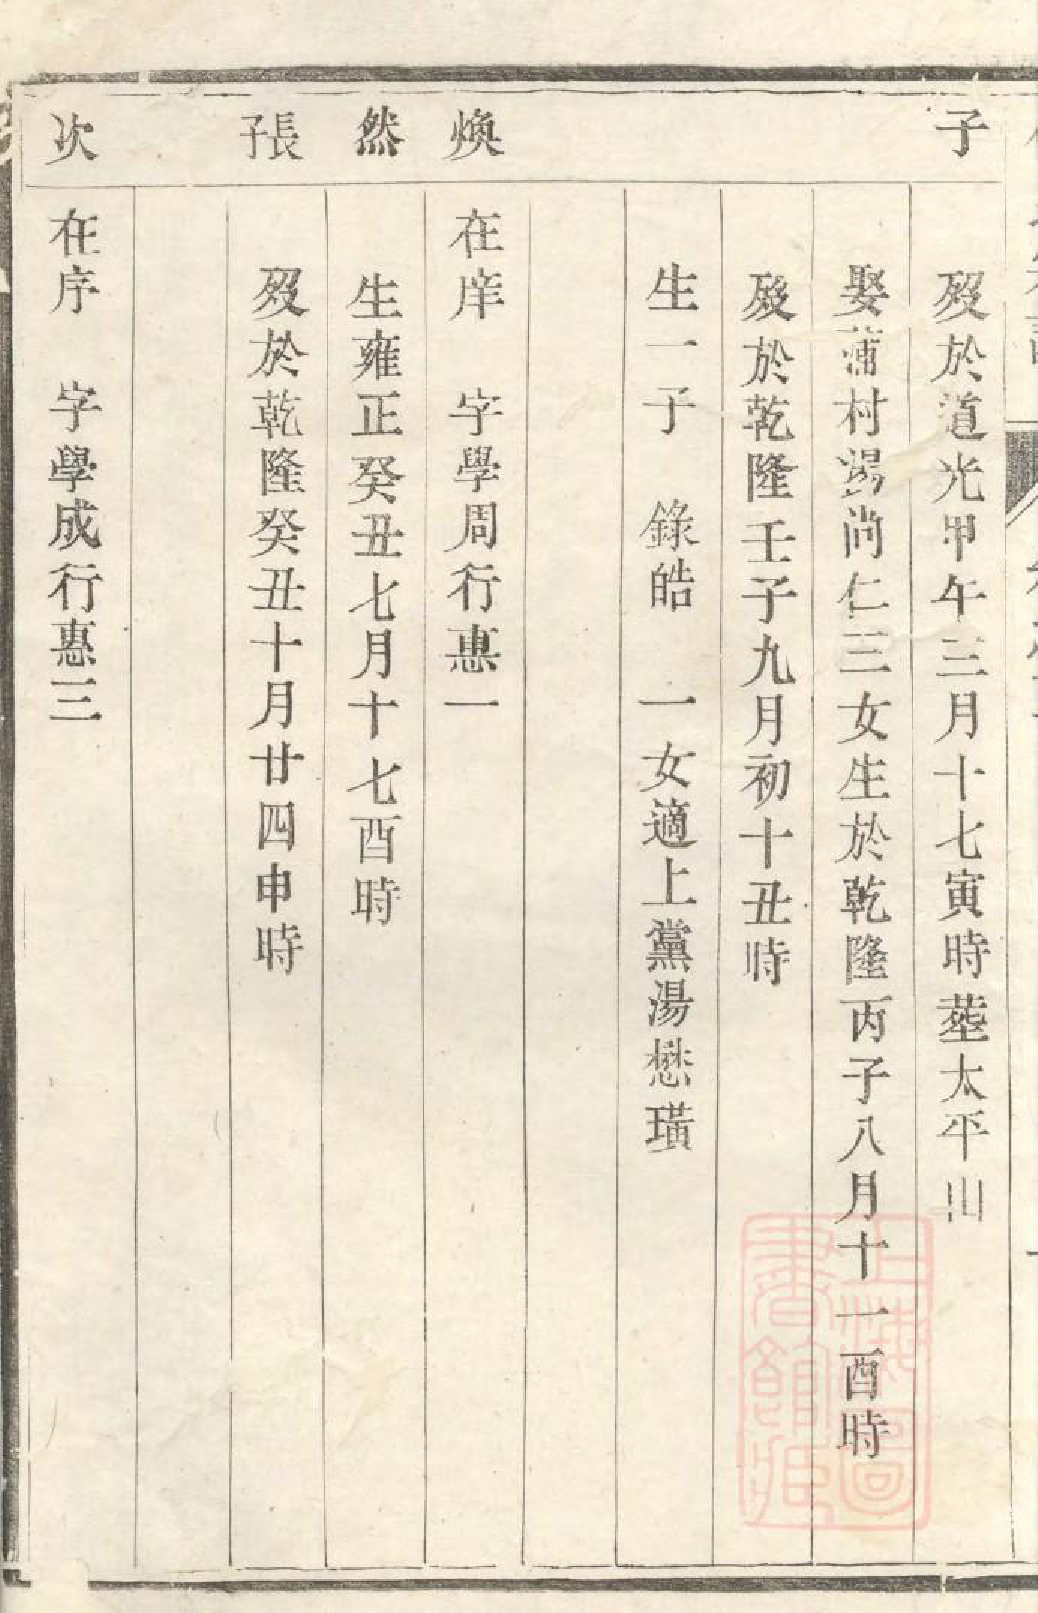 子
歿於道光甲午三月十七寅時塟太平山
娶蒲村湯尚仁三女生於乾隆丙子八月十一酉時
歿於乾隆壬子九月初十丑時
生一子 錄皓 一女適上黨湯懋璜
煥 在庠 字學周行惠一
然 生雍正癸丑七月十七酉時
長子 歿於乾隆癸丑十月廿四申時
次 在序 字學成行惠三
上海圖書館藏